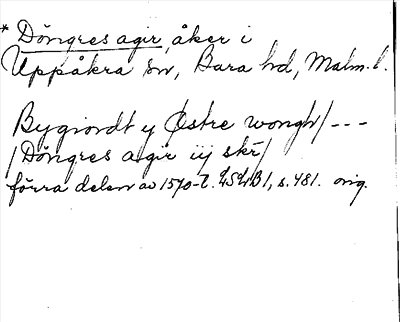 * Döngres agir, åker i
Uppåkra sn, Bara hd, Malm. l.
Bygiordt y Østre wongh / ---
/ Döngres agir iij skr /
förra delen av 1570-t. LSLB1, s. 481. orig.